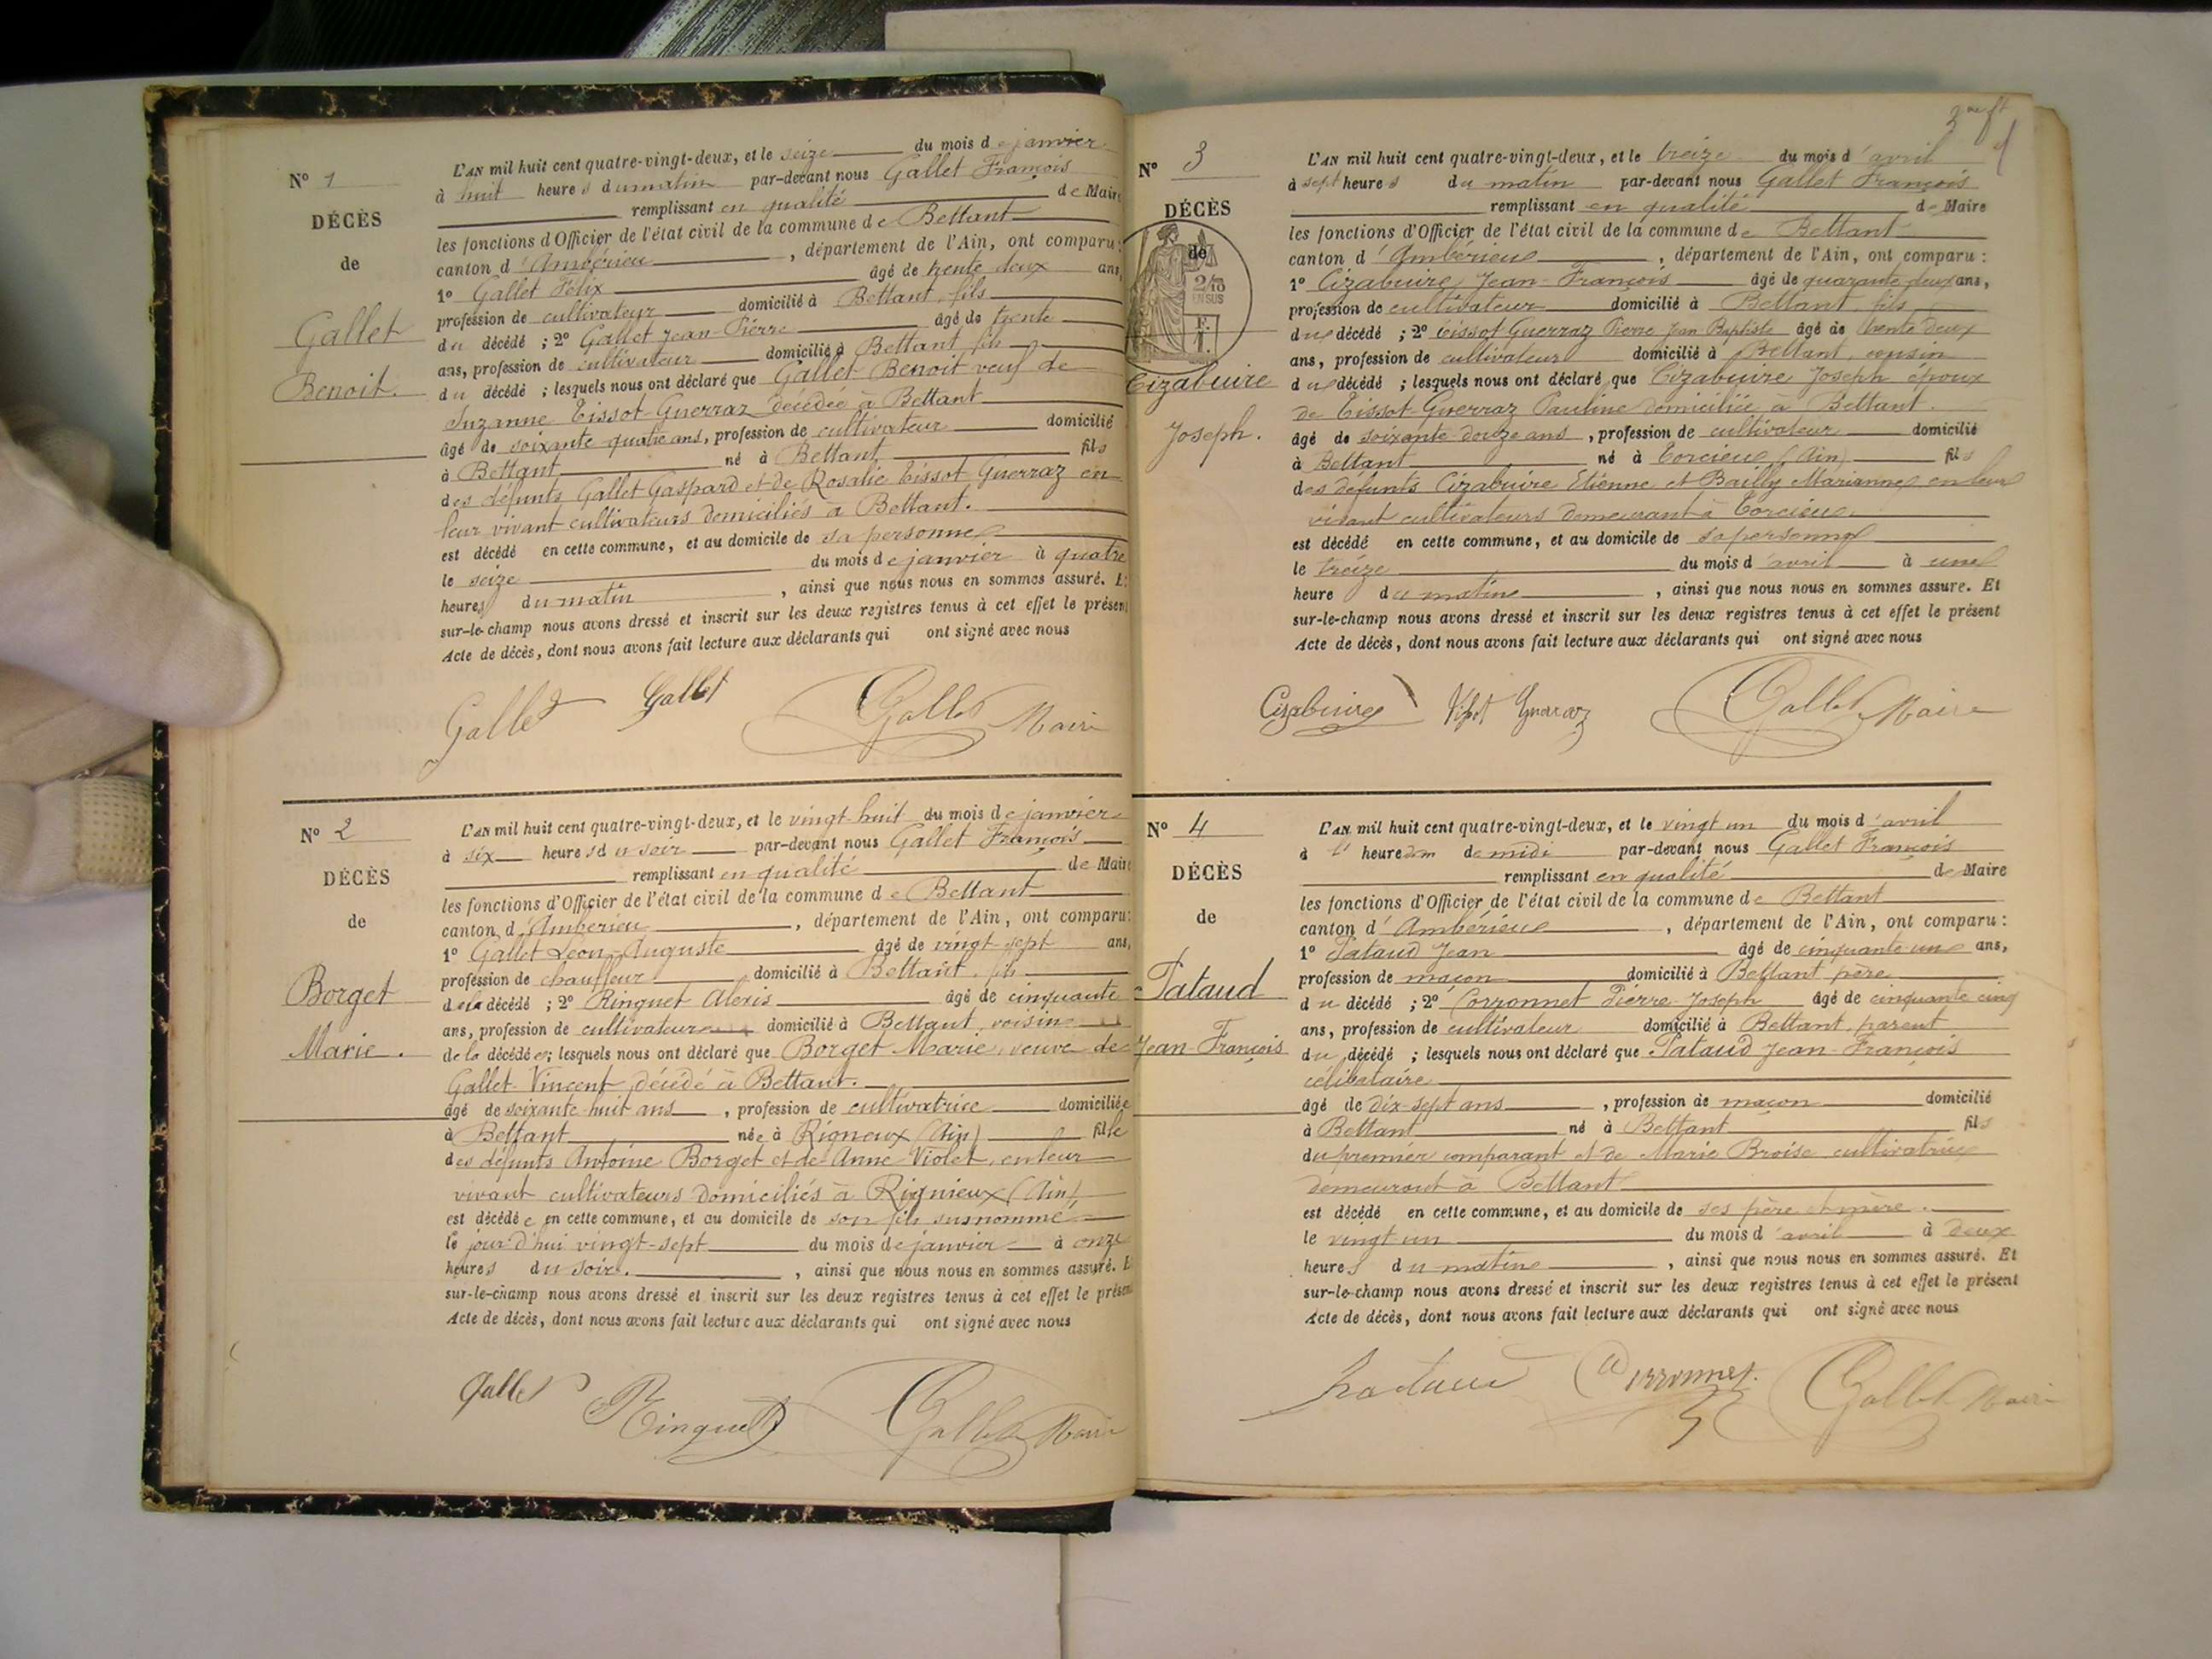 Nº 1
DÉCÈS
de
Gallet
Benoit.
L'AN mil huit cent quatre-vingt-deux, et le seize du mois de janvier
à huit heures du matin par-devant nous Gallet François
remplissant en qualité de Maire
les fonctions d'Officier de l'état civil de la commune de Bettant
canton d'Ambérieu, département de l'Ain, ont comparu:
1º Gallet Félix âgé de trente deux ans,
profession de cultivateur domicilié à Bettant, fils
du décédé ; 2º Gallet Jean-Pierre âgé de trente
ans, profession de cultivateur domicilié à Bettant fils
du décédé ; lesquels nous ont déclaré que Gallet Benoit veuf de
Suzanne Tissot-Guerraz décédée à Bettant
âgé de soixante-quatre ans, profession de cultivateur domicilié
à Bettant né à Bettant fils
des défunts Gallet Gaspard et de Rosalie Tissot Guerraz en
leur vivant cultivateurs domiciliés à Bettant.
est décédé en cette commune, et au domicile de sa personne
le seize du mois de janvier à quatre
heures du matin, ainsi que nous nous en sommes assuré. E
sur-le-champ nous avons dressé et inscrit sur les deux registres tenus à cet effet le présen
Acte de décès, dont nous avons fait lecture aux déclarants qui ont signé avec nous
Gallet Gallet Gallet Maire
Nº 2
DÉCÈS
de
Borget
Marie.
L'AN mil huit cent quatre-vingt-deux, et le vingt huit du mois de janvier
à six heures du soir par-devant nous Gallet François
remplissant en qualité de Maire
les fonctions d'Officier de l'état civil de la commune de Bettant
canton d'Ambérieu, département de l'Ain, ont comparu:
1º Gallet Léon-Auguste âgé de vingt-sept ans,
profession de chauffeur domicilié à Bettant, fils
de la décédé ; 2º Ringuet Alexis âgé de cinquante
ans, profession de cultivateur domicilié à Bettant, voisin
de la décédée ; lesquels nous ont déclaré que Borget Marie, veuve de
Gallet Vincent, décédé à Bettant.
âgé de soixante-huit ans, profession de cultivatrice domiciliée
à Bettant née à Rigneux (Ain) fille
des défunts Antoine Borget et de Anne Violet, en leur
vivant cultivateurs domiciliés à Rignieux (Ain),
est décédée en cette commune, et au domicile de son fils susnommé
le jour d'hui vingt-sept du mois de janvier à onze
heures du soir., ainsi que nous nous en sommes assuré. E
sur-le-champ nous avons dressé et inscrit sur les deux registres tenus à cet effet le présen
Acte de décès, dont nous avons fait lecture aux déclarants qui ont signé avec nous
Gallet Ringuet Gallet Maire
2me ft
Nº 3
DÉCÈS
de
2/10
EN SUS
Cizabuire
Joseph.
L'AN mil huit cent quatre-vingt-deux, et le treize du mois d'avril
à sept heures du matin par-devant nous Gallet François
remplissant en qualité de Maire
les fonctions d'Officier de l'état civil de la commune de Bettant
canton d'Ambérieu, département de l'Ain, ont comparu:
1º Cizabuire Jean-François âgé de quarante deux ans,
profession de cultivateur domicilié à Bettant, fils
du décédé ; 2º Tissot Guerraz Pierre Jean Baptiste âgé de trente deux
ans, profession de cultivateur domicilié à Bettant, cousin
du décédé ; lesquels nous ont déclaré que Cizabuire Joseph époux
de Tissot-Guerraz Pauline domiciliée à Bettant.
âgé de soixante-douze ans, profession de cultivateur domicilié
à Bettant né à Torcieu (Ain) fils
des défunts Cizabuire Etienne et Bailly Marianne en leur
vivant cultivateurs demeurant à Torcieu.
est décédé en cette commune, et au domicile de sa personne
le treize du mois d'avril à une
heure du matin, ainsi que nous nous en sommes assuré. Et
sur-le-champ nous avons dressé et inscrit sur les deux registres tenus à cet effet le présent
Acte de décès, dont nous avons fait lecture aux déclarants qui ont signé avec nous
Cizabuire Tissot Guerraz Gallet Maire
Nº 4
DÉCÈS
de
Pataud
Jean-François
L'AN mil huit cent quatre-vingt-deux, et le vingt un du mois d'avril
à heure de midi par-devant nous Gallet François
remplissant en qualité de Maire
les fonctions d'Officier de l'état civil de la commune de Bettant
canton d'Ambérieu, département de l'Ain, ont comparu:
1º Pataud Jean âgé de cinquante-un ans,
profession de maçon domicilié à Bettant père
du décédé ; 2º Corronnet Pierre-Joseph âgé de cinquante cinq
ans, profession de cultivateur domicilié à Bettant, parent
du décédé ; lesquels nous ont déclaré que Pataud Jean-François
célibataire
âgé de dix-sept ans, profession de maçon domicilié
à Bettant né à Bettant fils
du premier comparant et de Marie Broise cultivatrice
demeurant à Bettant
est décédé en cette commune, et au domicile de ses père et mère.
le vingt un du mois d'avril à deux
heures du matin, ainsi que nous nous en sommes assuré. Et
sur-le-champ nous avons dressé et inscrit sur les deux registres tenus à cet effet le présent
Acte de décès, dont nous avons fait lecture aux déclarants qui ont signé avec nous
Pataud Corronnet Gallet Maire